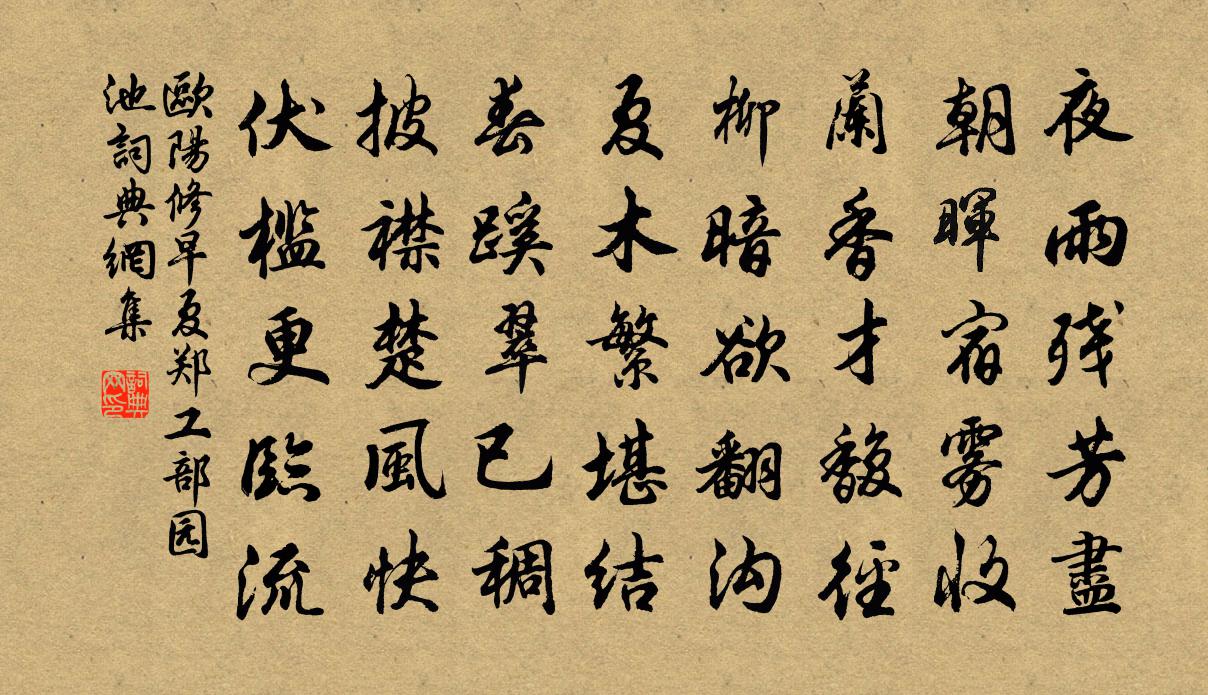 夜雨残芳盡
朝暉宿雾收
蘭香才馥徑
柳暗欲翻沟
夏木繁堪结
春蹊翠已稠
披襟楚風快
伏槛更臨流
歐陽修早夏郑工部园
池詞典網集
詞典網印